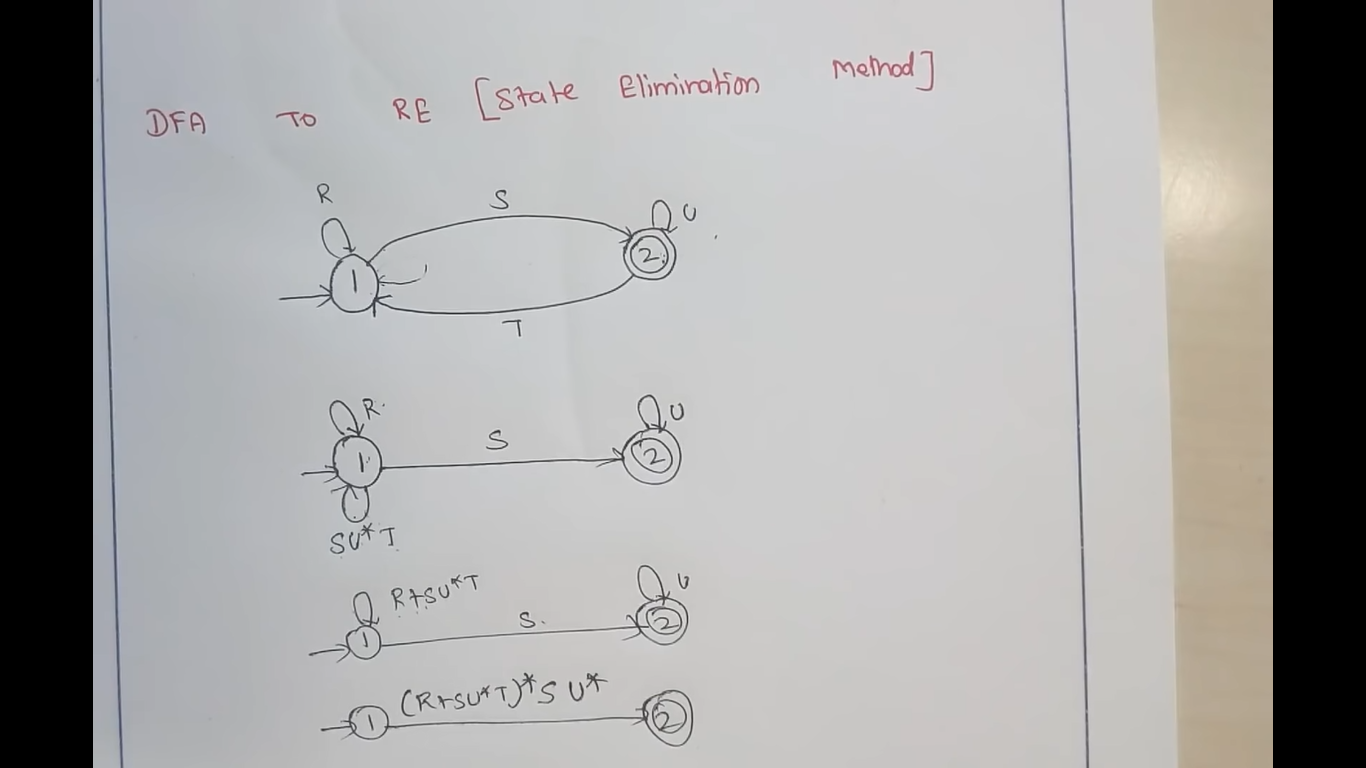 DFA TO RE [State Elimination Method]
R S U
1 2
T
R. U
S
1 2
SU*T
R+SU*T U
S.
1 2
(R+SU*T)*SU*
1 2